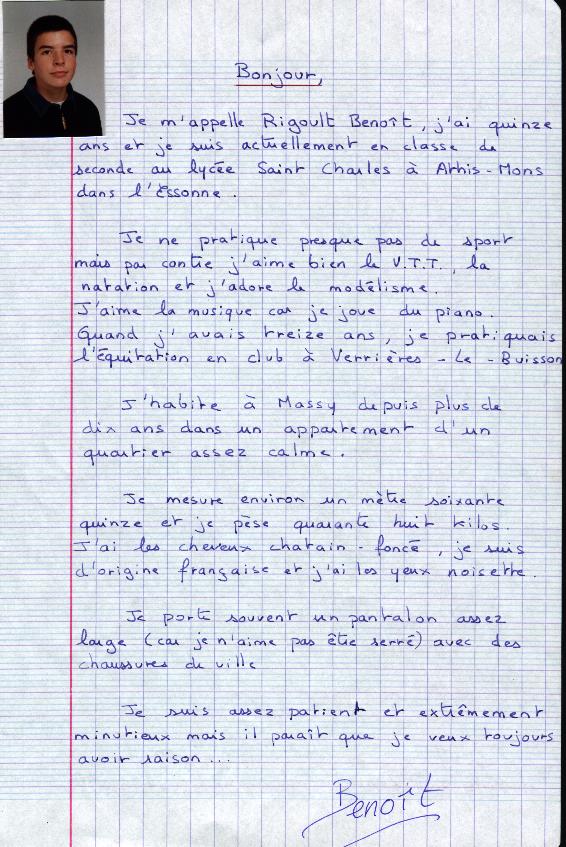 Bonjour,
Je m'appelle Rigoult Benoît, j'ai quinze
ans et je suis actuellement en classe de
seconde au lycée Saint Charles à Athis-Mons
dans l'Essonne.
Je ne pratique presque pas de sport
mais par contre j'aime bien le V.T.T., la
natation et j'adore le modélisme.
J'aime la musique car je joue du piano.
Quand j'avais treize ans, je pratiquais
l'équitation en club à Verrières-Le-Buisson
J'habite à Massy depuis plus de
dix ans dans un appartement d'un
quartier assez calme.
Je mesure environ un mètre soixante
quinze et je pèse quarante huit kilos.
J'ai les cheveux chatain-foncé, je suis
d'origine française et j'ai les yeux noisette.
Je porte souvent un pantalon assez
large (car je n'aime pas être serré) avec des
chaussures de ville
Je suis assez patient et extrêmement
minutieux mais il paraît que je veux toujours
avoir raison...
Benoît